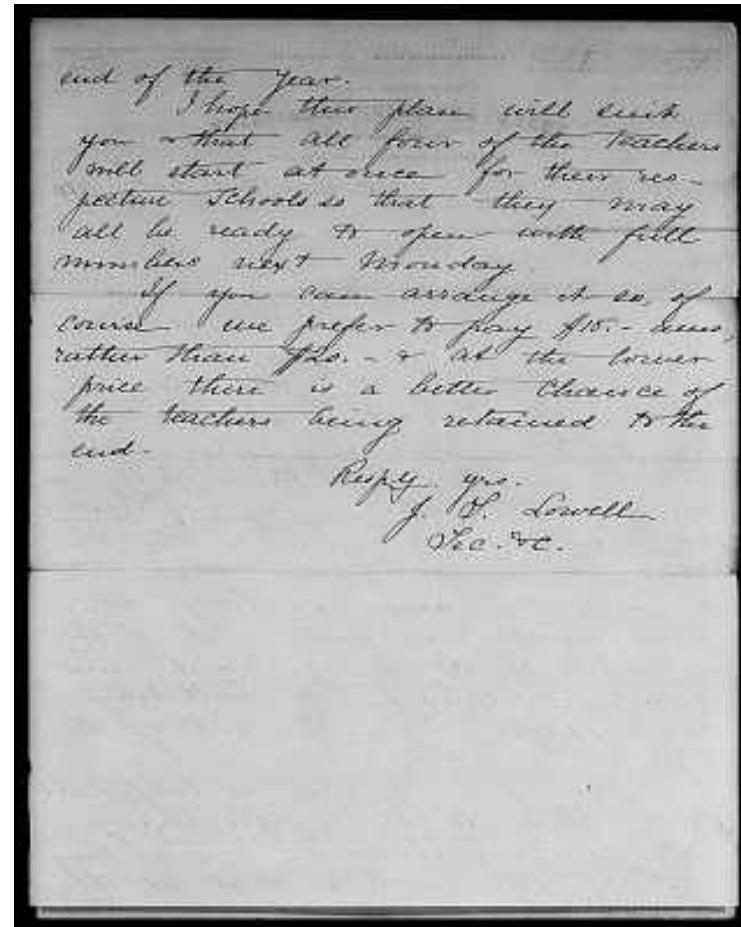 end of the year.
I hope this plan will suit
you & that all four of the teachers
will start at once for their res-
pective schools so that they may
all be ready to open with full
numbers next Monday.
If you can arrange it so, of
course we prefer to pay $15.-
rather than $20. - & at the lower
price there is a better chance of
the teachers being retained to the
end.
Respy. yrs.
J. Lowell
Sec. &c.